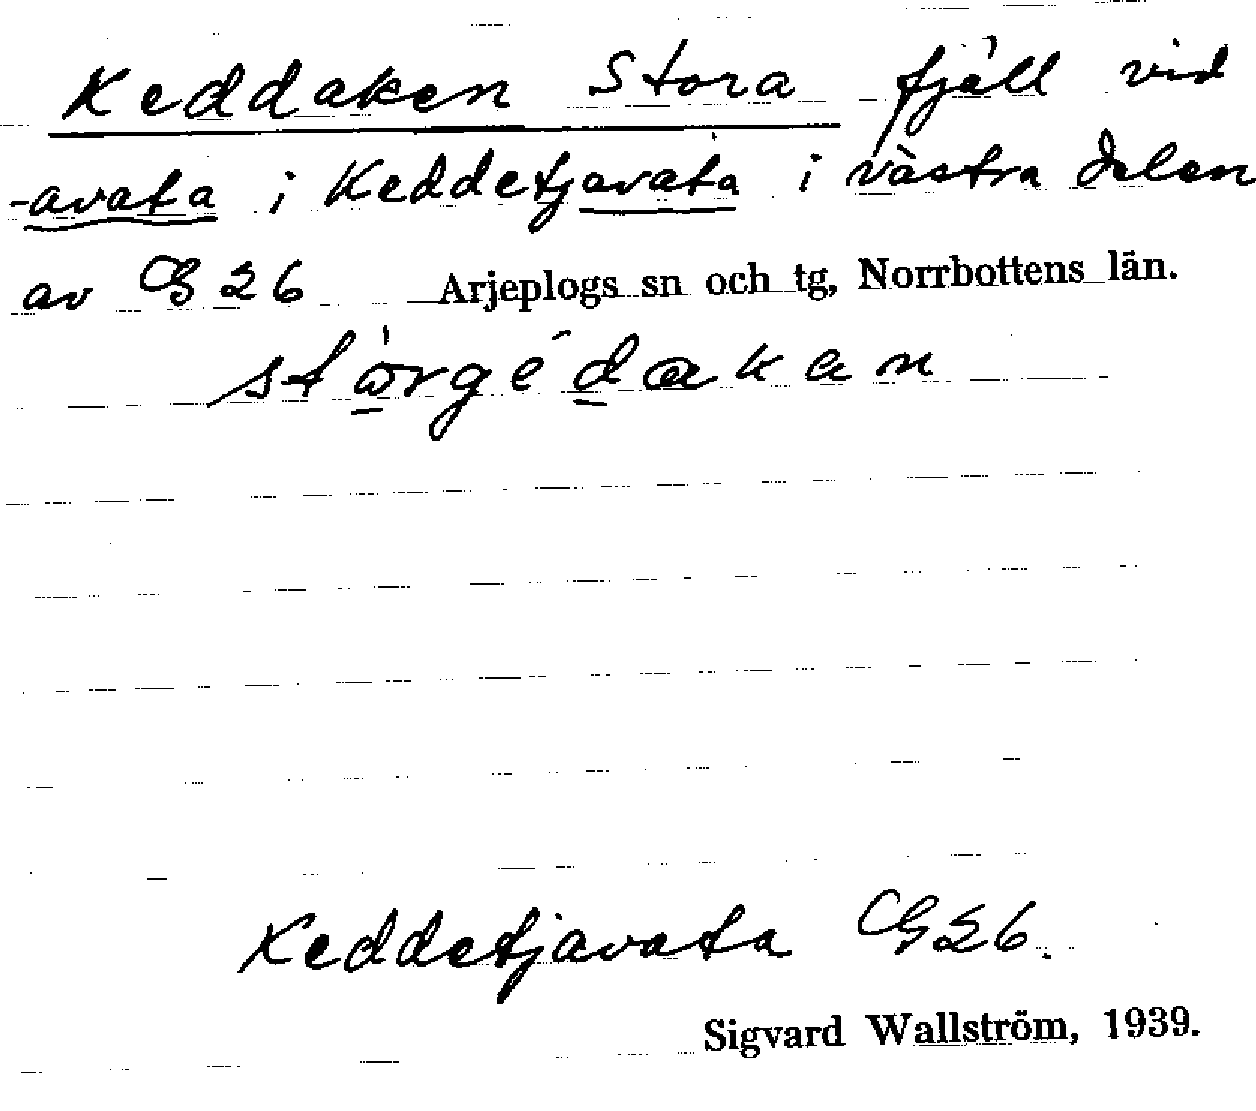 Keddaken Stora fjäll vid
-avata i Keddetjavata i västra delen
av G 26 Arjeplogs sn och tg, Norrbottens län.
Keddetjavata G26.
Sigvard Wallström, 1939.